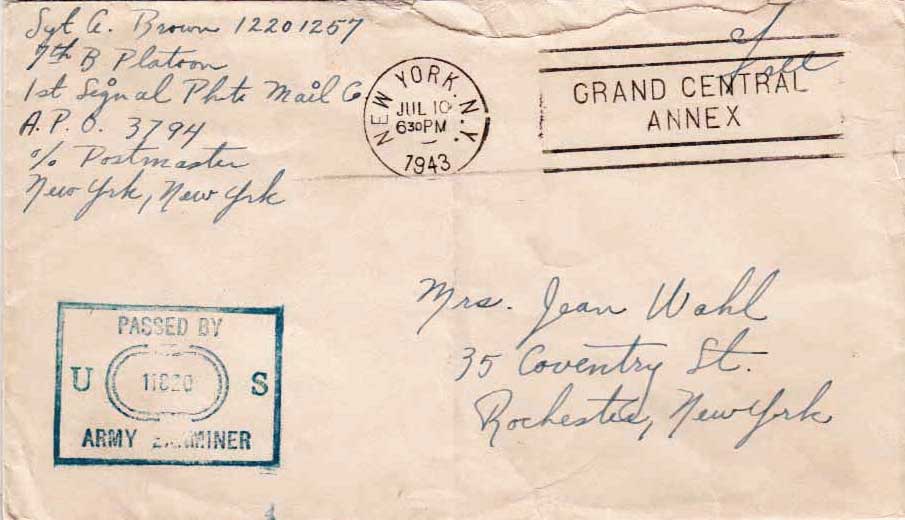 Sgt A. Brown 12201257
7th B Platoon
1st Signal Photo Mail Co
A.P.O. 3794
c/o Postmaster
New York, New York
NEW YORK, N.Y.
JUL 10
630PM
1943
Free
GRAND CENTRAL
ANNEX
Mrs. Jean Wahl
35 Coventry St.
Rochester, New York
PASSED BY
U 11820 S
ARMY EXAMINER